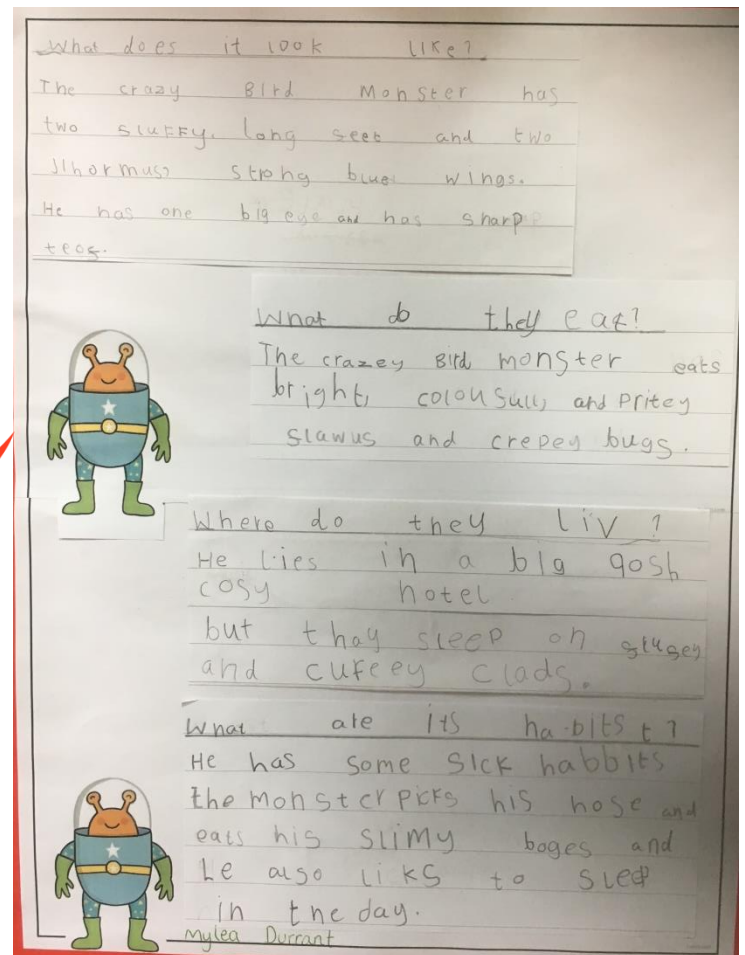 What does it look like?
The crazy Bird Monster has
two sluffy, long seet and two
strong blue wings.
He has one big eye and has sharp
teos.
What do they eat?
The crazey Bird monster eats
bright, colousull, and Pritey
slawus and crepey bugs.
Where do they liv?
He lies in a big gosh
cosy hotel
but thay sleep on slusey
and cufeey clads.
What are its habits t?
He has some sick habbits
the monster picks his nose and
eats his slimy boges and
he also liks to sleep
in the day.
Mylea Durrant